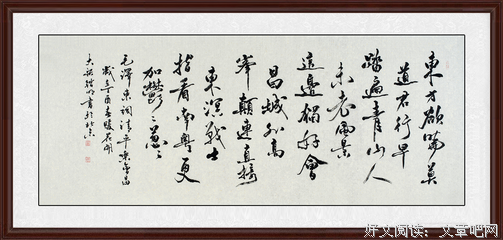 東方欲曉莫
道君行早
踏遍青山人
未老風景
這邊獨好會
昌城外高
峯顛連直接
東溟戰士
指看南粵更
加鬱〻蔥〻
毛澤東詞清平樂會昌
書於北京
好文阅读：文章吧网